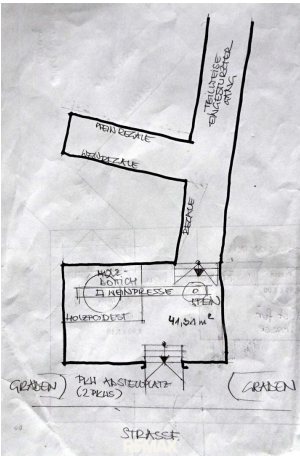 TEILWEISE
EINGESTÜRZTER
GANG
WEINREGALE
WEINREGALE
REGALE
HOLZ-
BOTTICH
WEINPRESSE
STEIN
HOLZPODEST
41,91 m²
GRABEN
PKW ABSTELLPLATZ
(2 PKWS)
GRABEN
STRASSE